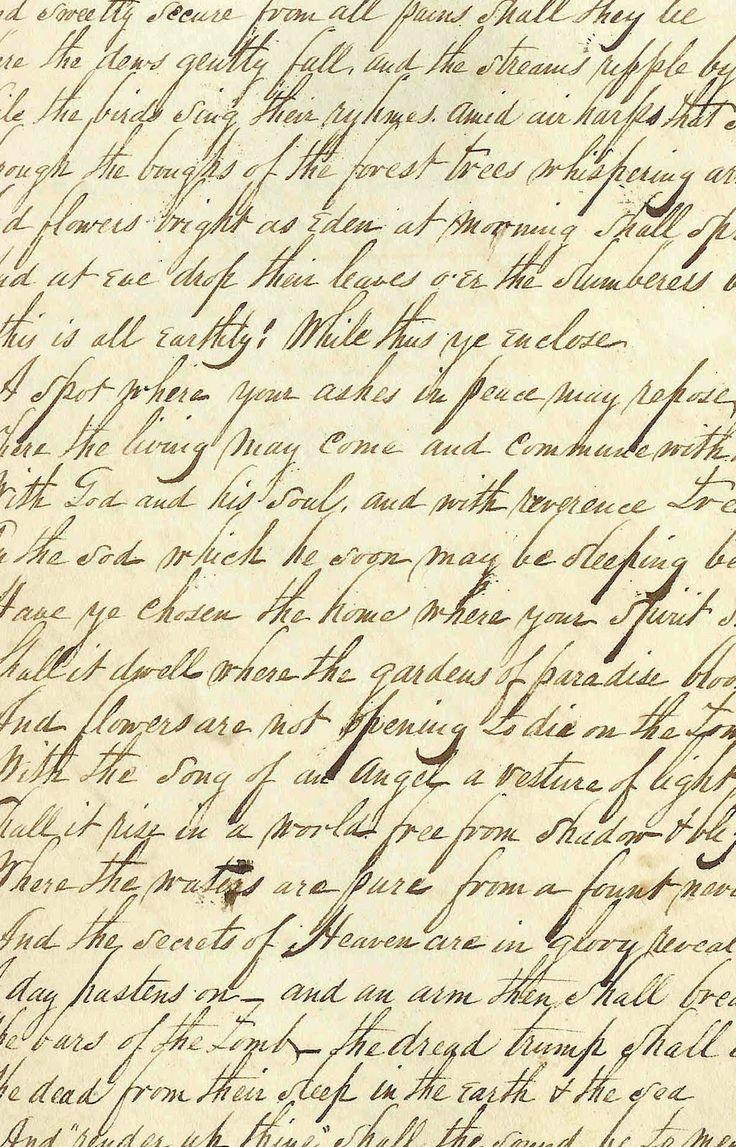 nd sweetly secure from all pains shall they be
re the dews gently fall, and the streams ripple by
ile the birds sing their ryhmes, amid air harps that s
rough the boughs of the forest trees whispering ar
d flowers bright as Eden at morning shall spr
nd at Eve drop their leaves o'er the slumberess b
this is all Earthly! While thus ye enclose
A spot where your ashes in peace may repose,
here the living may come and commune with
With God and his soul, and with reverence tre
the sod which he soon may be sleeping be
Have ye chosen the home where your spirit s
Shall it dwell where the gardens of paradise bloo
And flowers are not opening to die on the tom
With the song of an angel a vesture of light
Shall it rise in a world free from shadow &
Where the waters are pure from a fount neve
And the secrets of Heaven are in glory reveal
day hastens on — and an arm then shall brea
he bars of the tomb — the dread trump shall
he dead from their sleep in the Earth & the sea
And "render up thine" shall the sound